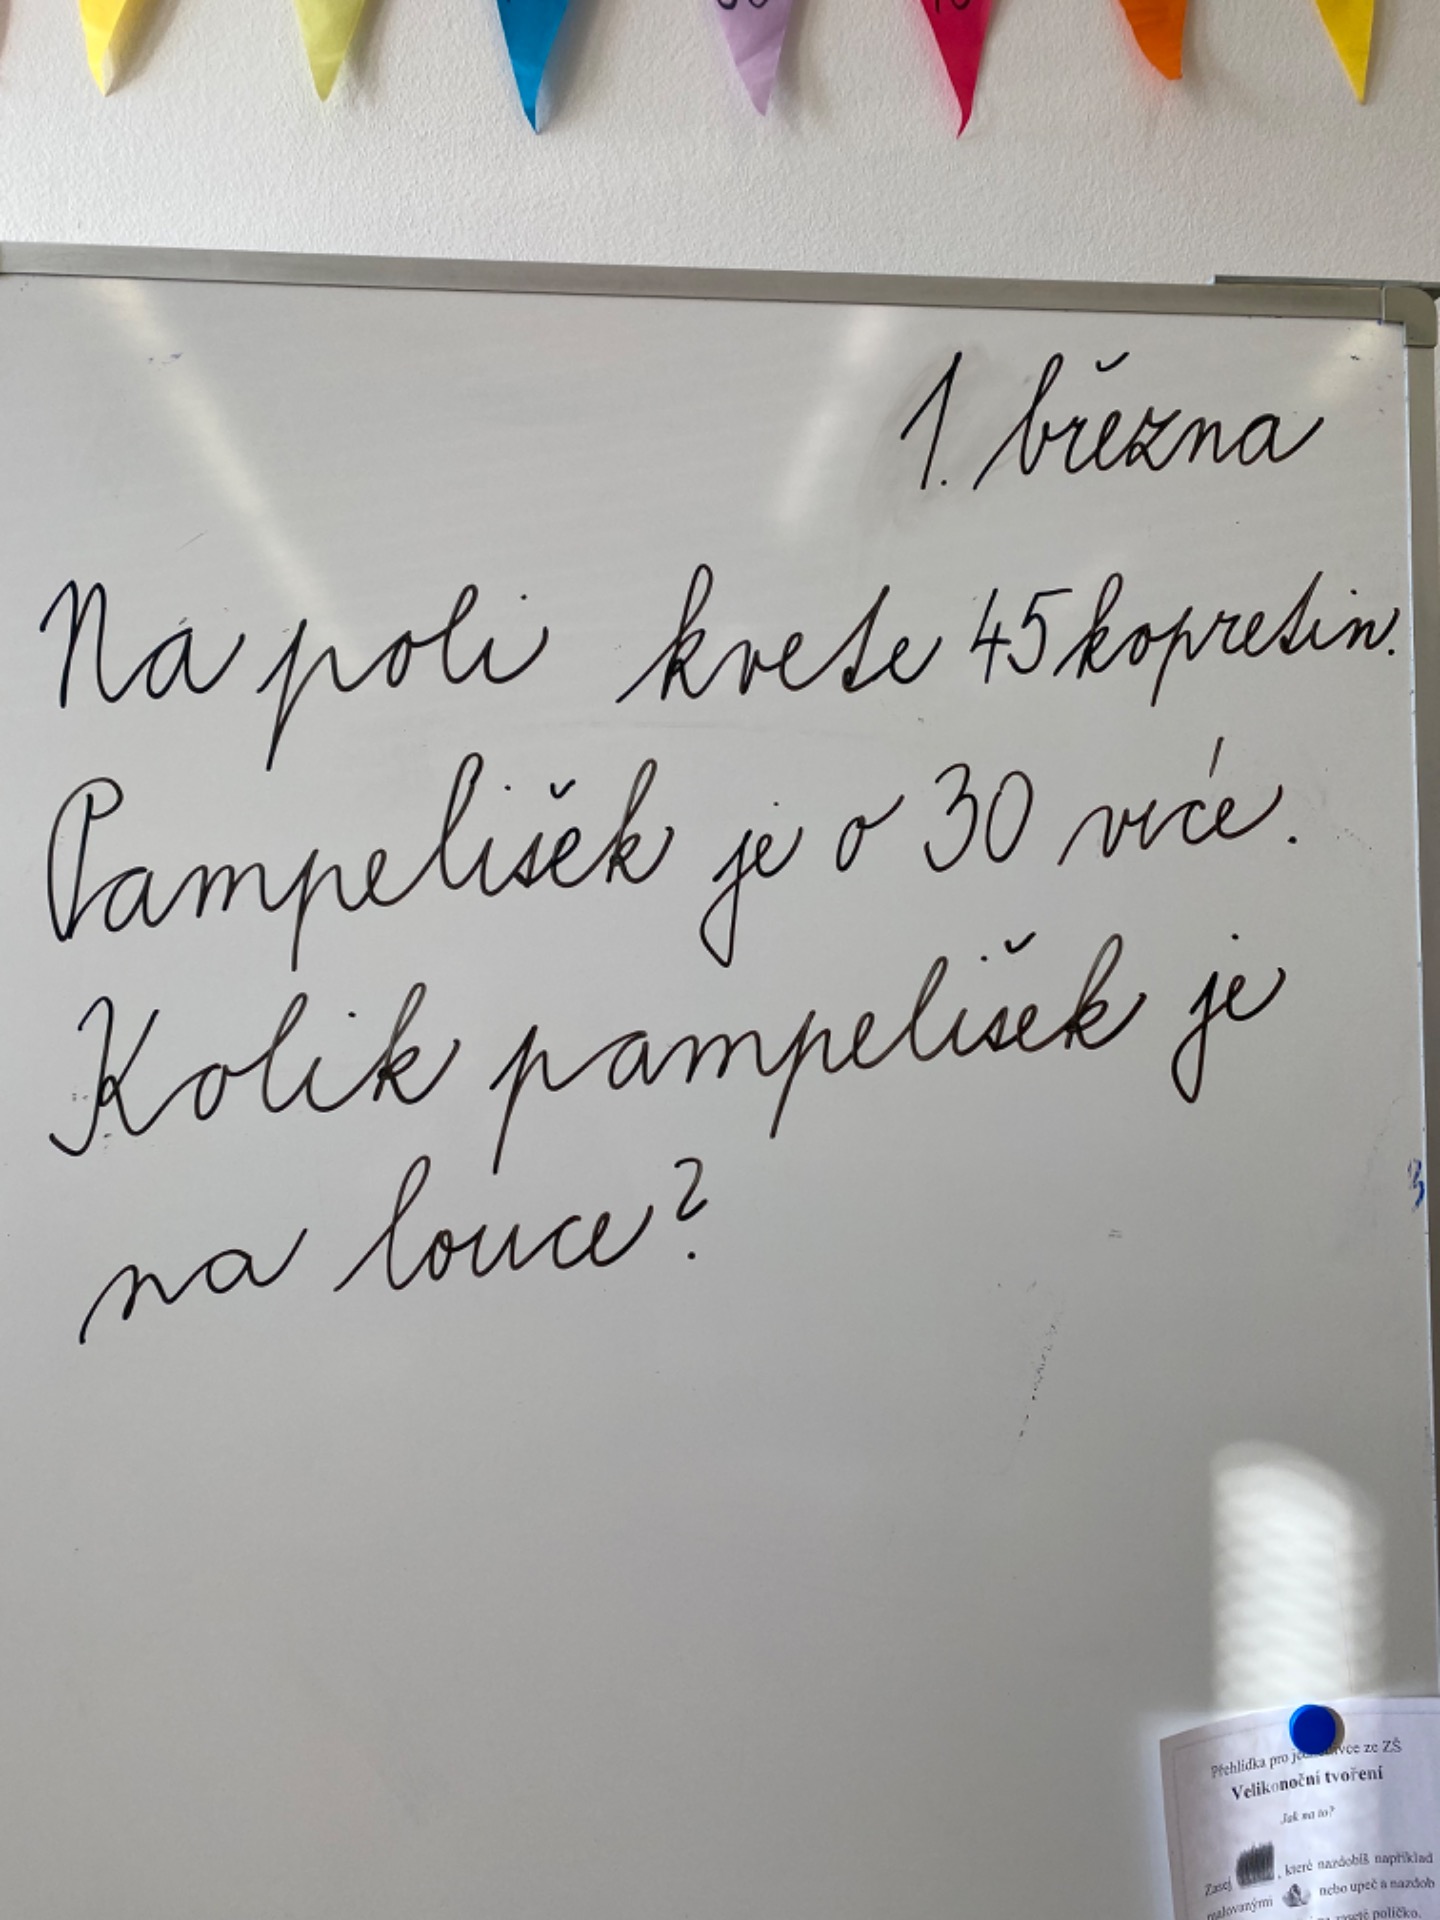 1. března
Na poli kvete 45 kopretin.
Pampelišek je o 30 více.
Kolik pampelišek je
na louce?
Přehlídka pro ze ZŠ
Velikonoční tvoření
Jak na to?
Zasej , které nazdobíš například
malovanými nebo upeč a nazdob
zaseté políčko.